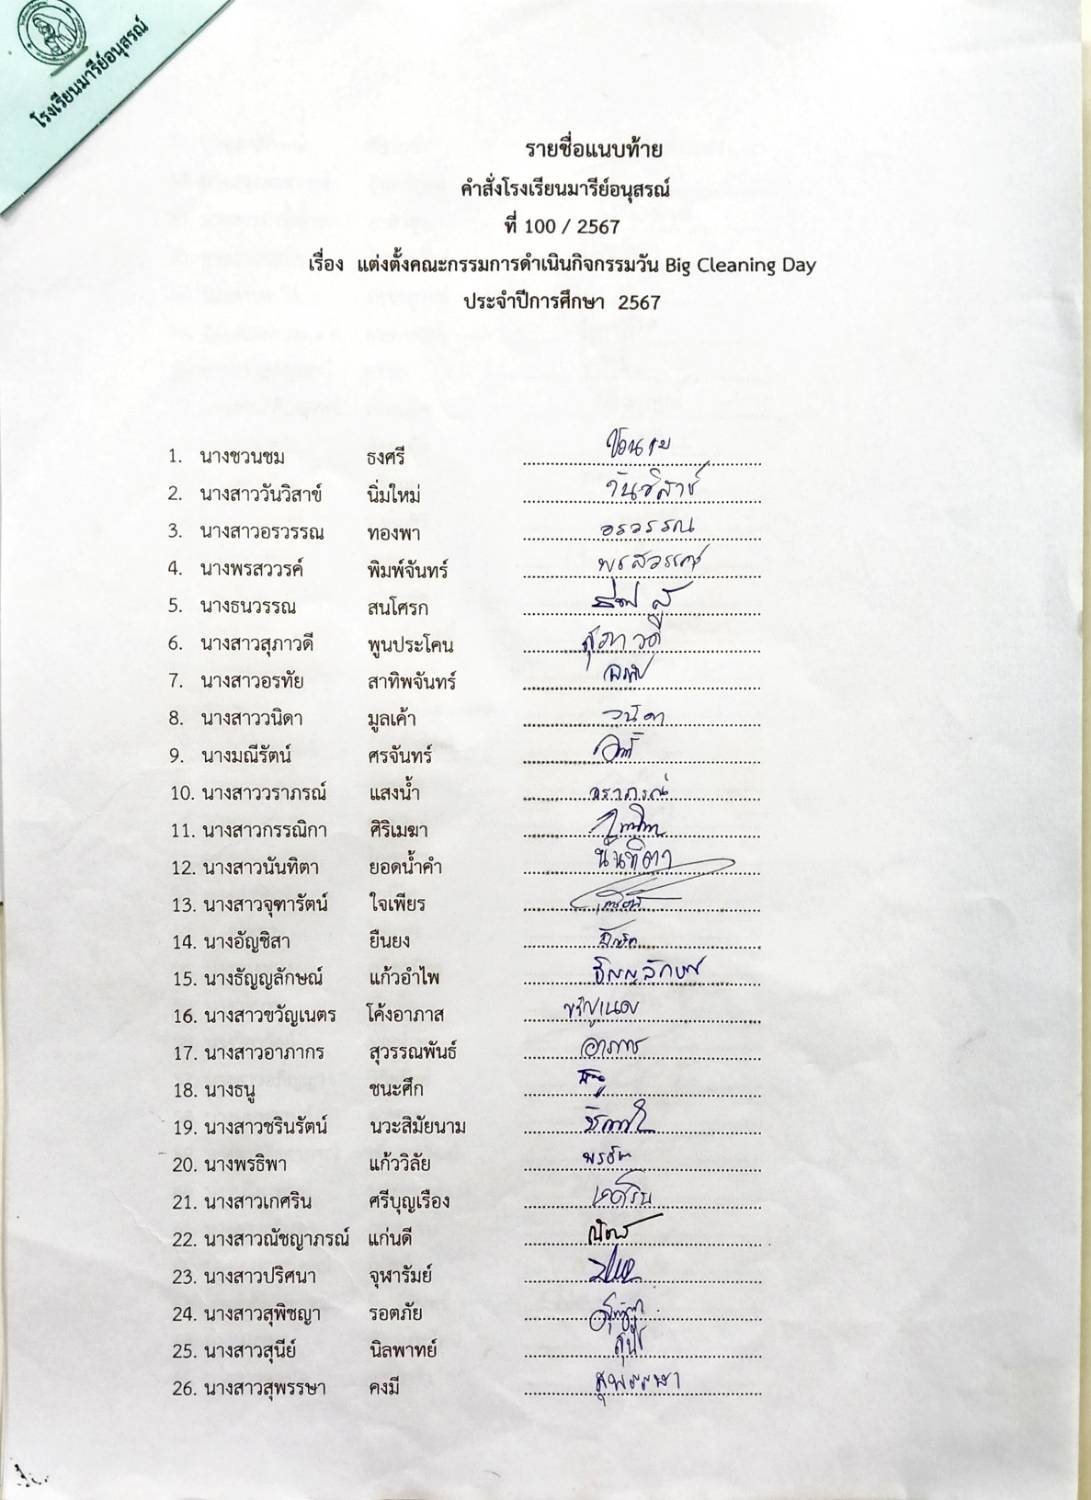 โรงเรียนมารีย์อนุสรณ์
รายชื่อแนบท้าย
คำสั่งโรงเรียนมารีย์อนุสรณ์
ที่ 100 / 2567
เรื่อง แต่งตั้งคณะกรรมการดำเนินกิจกรรมวัน Big Cleaning Day
ประจำปีการศึกษา 2567
1. นางชวนชม ธงศรี ชวนชม
2. นางสาววันวิสาข์ นิ่มใหม่ วันวิสาข์
3. นางสาวอรวรรณ ทองพา อรวรรณ
4. นางพรสววรค์ พิมพ์จันทร์ พรสวรรค์
5. นางธนวรรณ สนโศรก
6. นางสาวสุภาวดี พูนประโคน สุภาวดี
7. นางสาวอรทัย สาทิพจันทร์
8. นางสาววนิดา มูลเค้า วนิดา
9. นางมณีรัตน์ ศรจันทร์
10. นางสาววราภรณ์ แสงน้ำ วราภรณ์
11. นางสาวกรรณิกา ศิริเมฆา
12. นางสาวนันทิตา ยอดน้ำคำ นันทิตา
13. นางสาวจุฑารัตน์ ใจเพียร
14. นางอัญชิสา ยืนยง
15. นางธัญญลักษณ์ แก้วอำไพ ธัญญลักษณ์
16. นางสาวขวัญเนตร โค้งอาภาส ขวัญเนตร
17. นางสาวอาภากร สุวรรณพันธ์ อาภากร
18. นางธนู ชนะศึก ธนู
19. นางสาวชรินรัตน์ นวะสิมัยนาม
20. นางพรธิพา แก้ววิลัย
21. นางสาวเกศริน ศรีบุญเรือง เกศริน
22. นางสาวณัชญาภรณ์ แก่นดี
23. นางสาวปริศนา จุฬารัมย์
24. นางสาวสุพิชญา รอตภัย
25. นางสาวสุนีย์ นิลพาทย์ สุนีย์
26. นางสาวสุพรรษา คงมี สุพรรษา